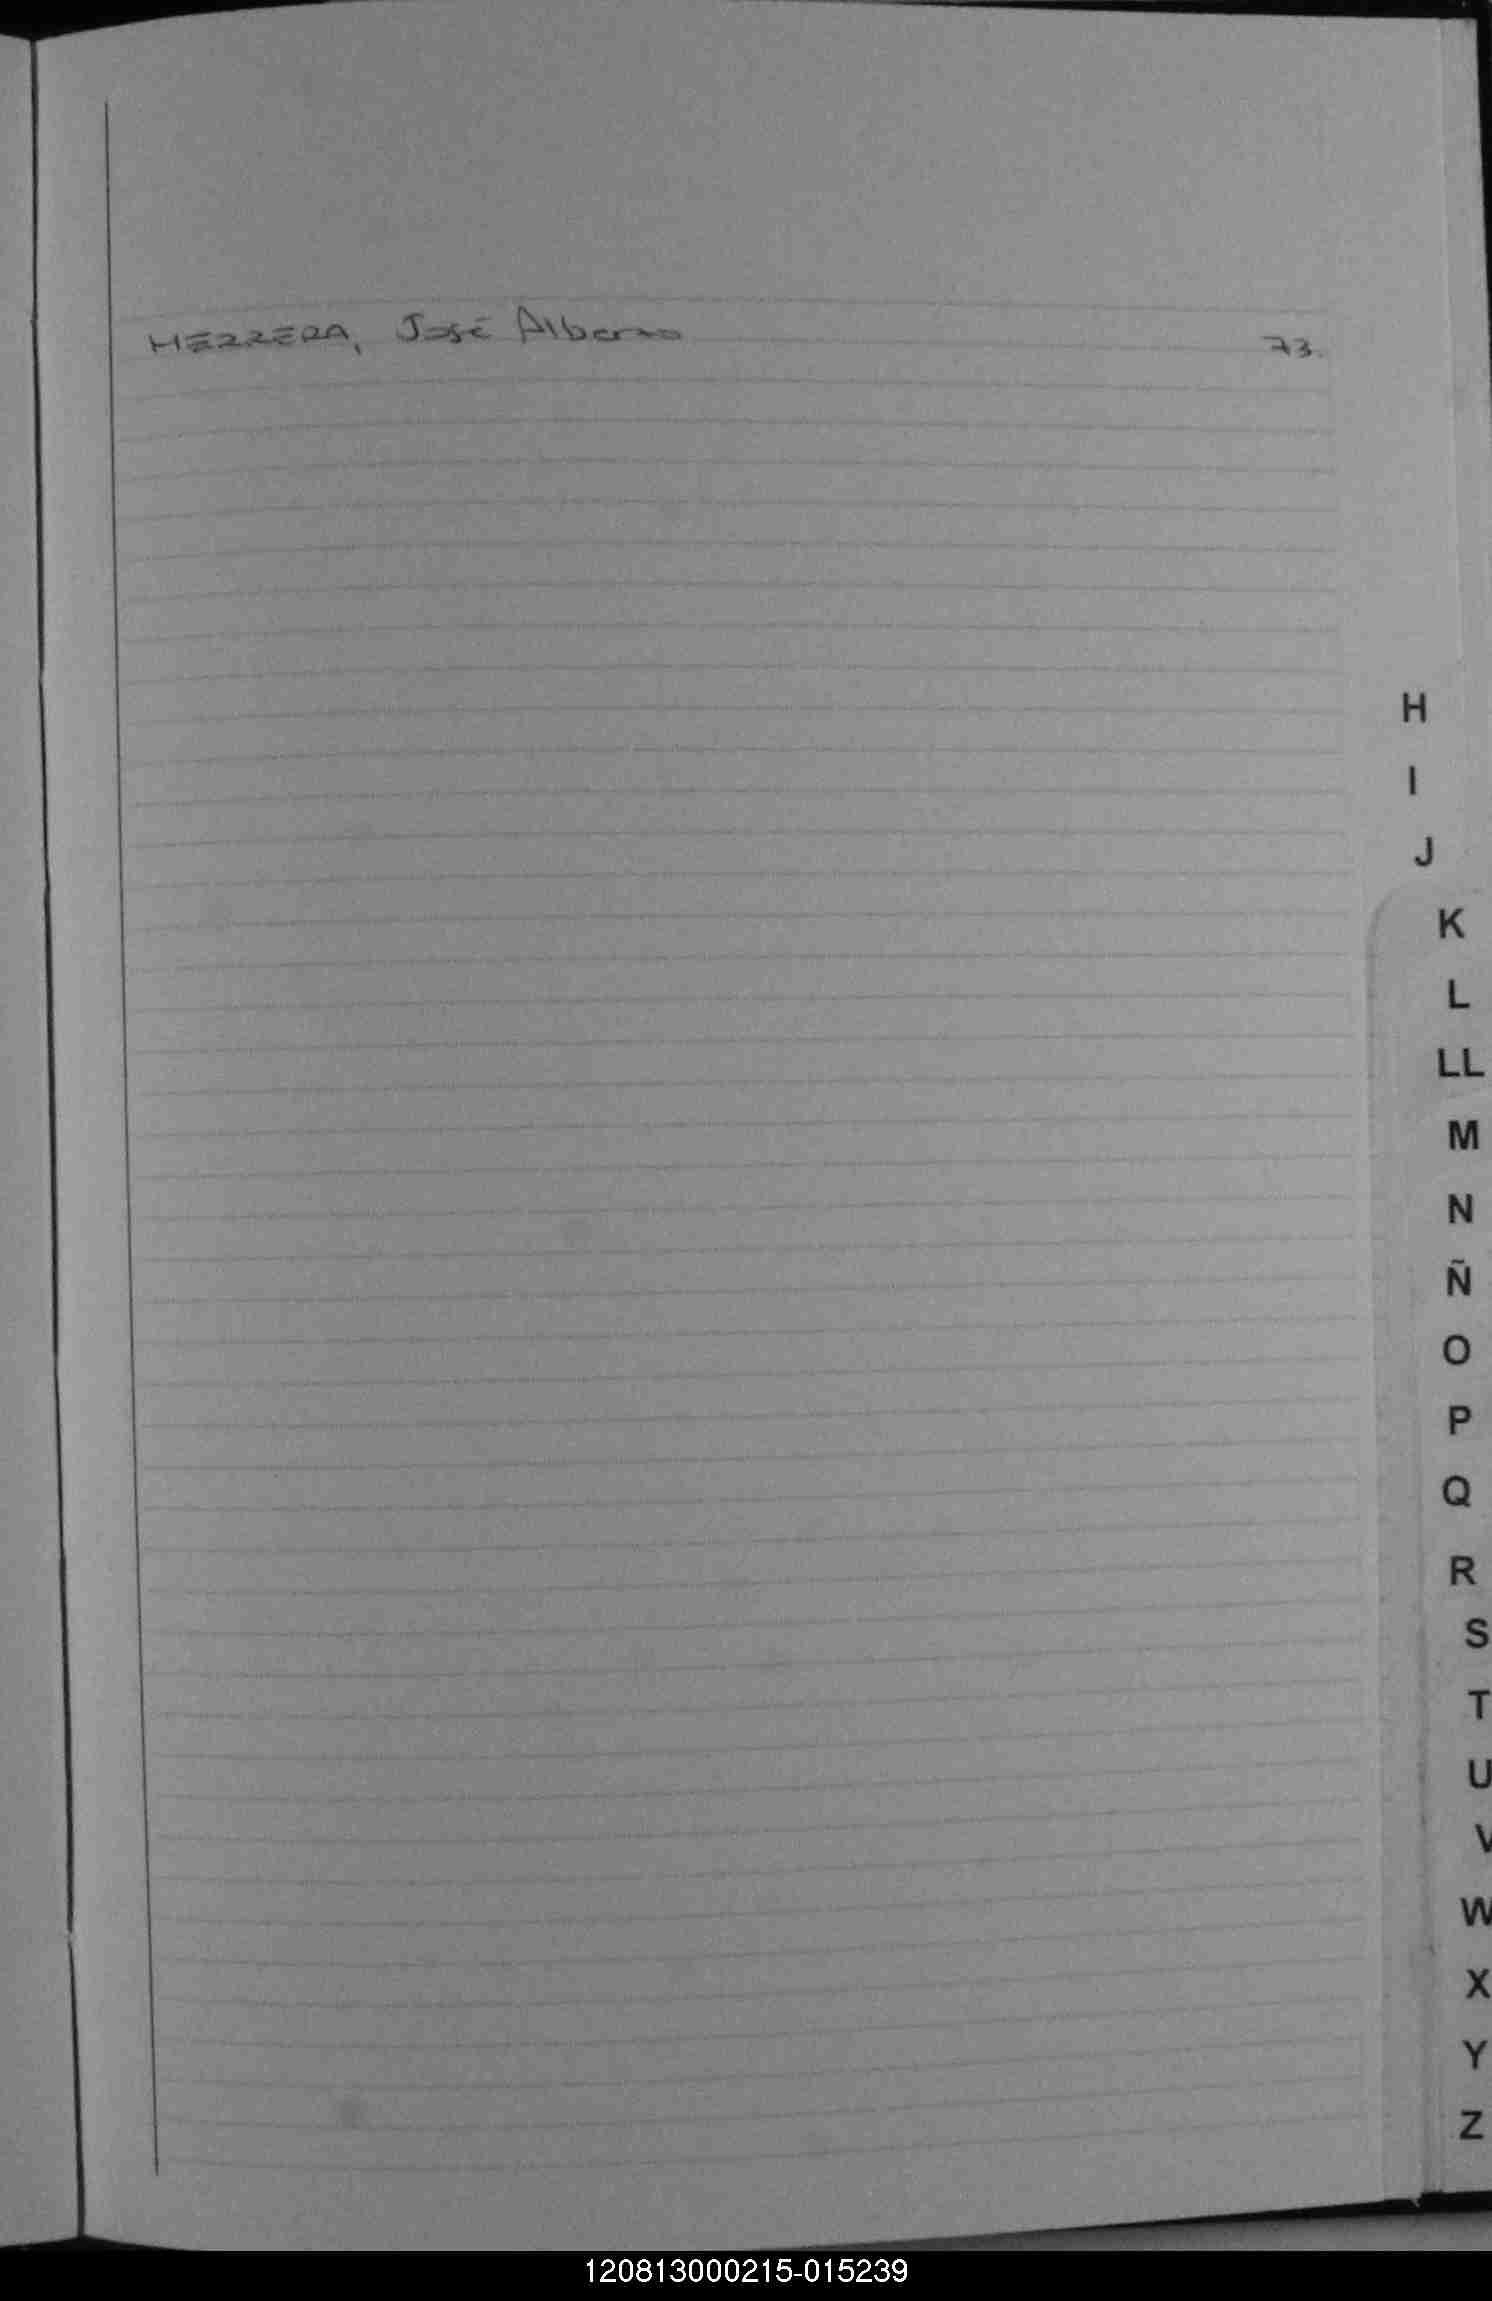 HERRERA, José Alberto 73.
H
I
J
K
L
LL
M
N
Ñ
O
P
Q
R
S
T
U
V
W
X
Y
Z
120813000215-015239